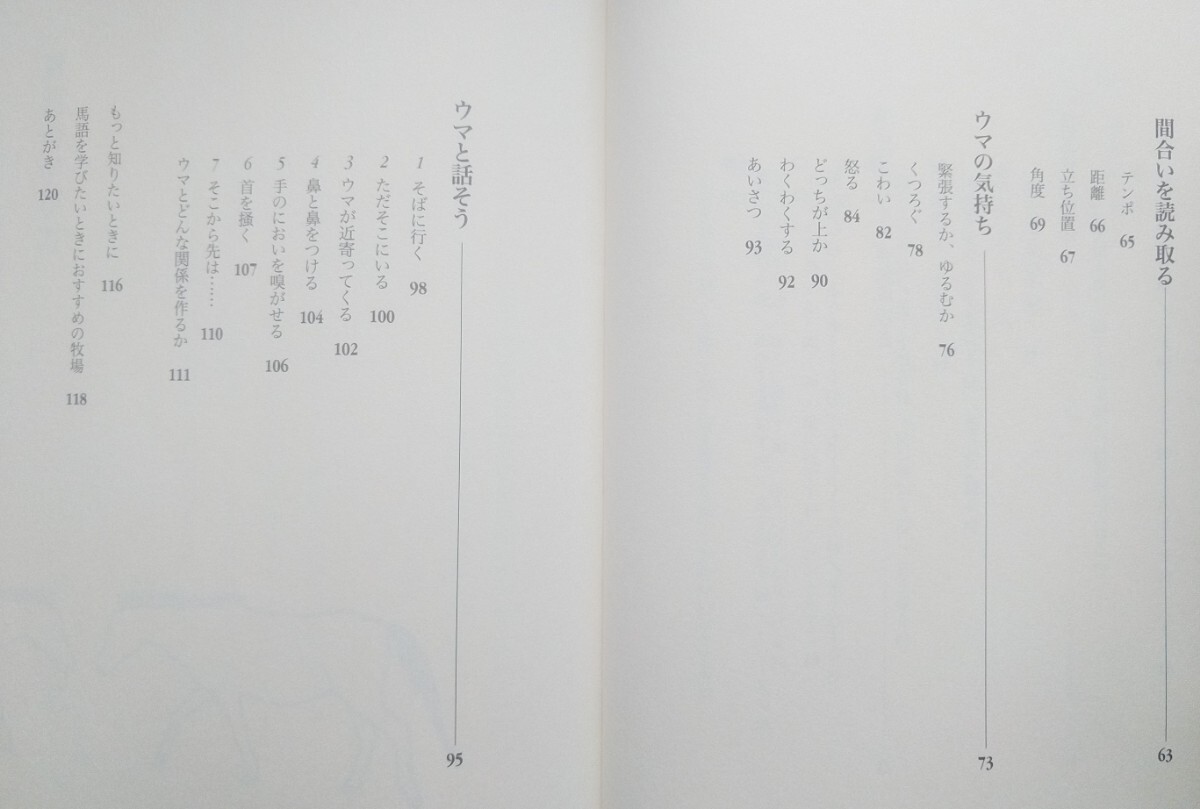 間合いを読み取る 63
テンポ 65
距離 66
立ち位置 67
角度 69
ウマの気持ち 73
緊張するか、ゆるむか 76
くつろぐ 78
こわい 82
怒る 84
どっちが上か 90
わくわくする 92
あいさつ 93
ウマと話そう 95
1 そばに行く 98
2 ただそこにいる 100
3 ウマが近寄ってくる 102
4 鼻と鼻をつける 104
5 手のにおいを嗅がせる 106
6 首を掻く 107
7 そこから先は…… 110
ウマとどんな関係を作るか 111
もっと知りたいときに 116
馬語を学びたいときにおすすめの牧場 118
あとがき 120